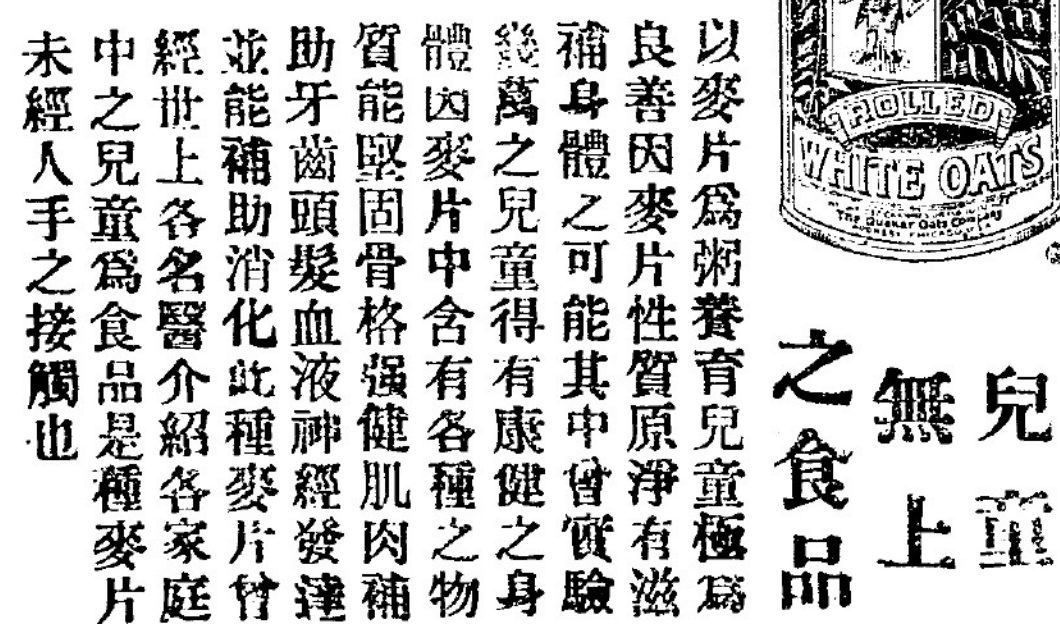 兒童
無上
之食品
ROLLED
WHITE OATS
The Quaker Oats Company
以麥片爲粥養育兒童極爲
良善因麥片性質原淨有滋
補身體之可能其中曾實驗
幾萬之兒童得有康健之身
體因麥片中含有各種之物
質能堅固骨格强健肌肉補
助牙齒頭髮血液神經發達
並能補助消化此種麥片曾
經世上各名醫介紹各家庭
中之兒童爲食品是種麥片
未經人手之接觸也